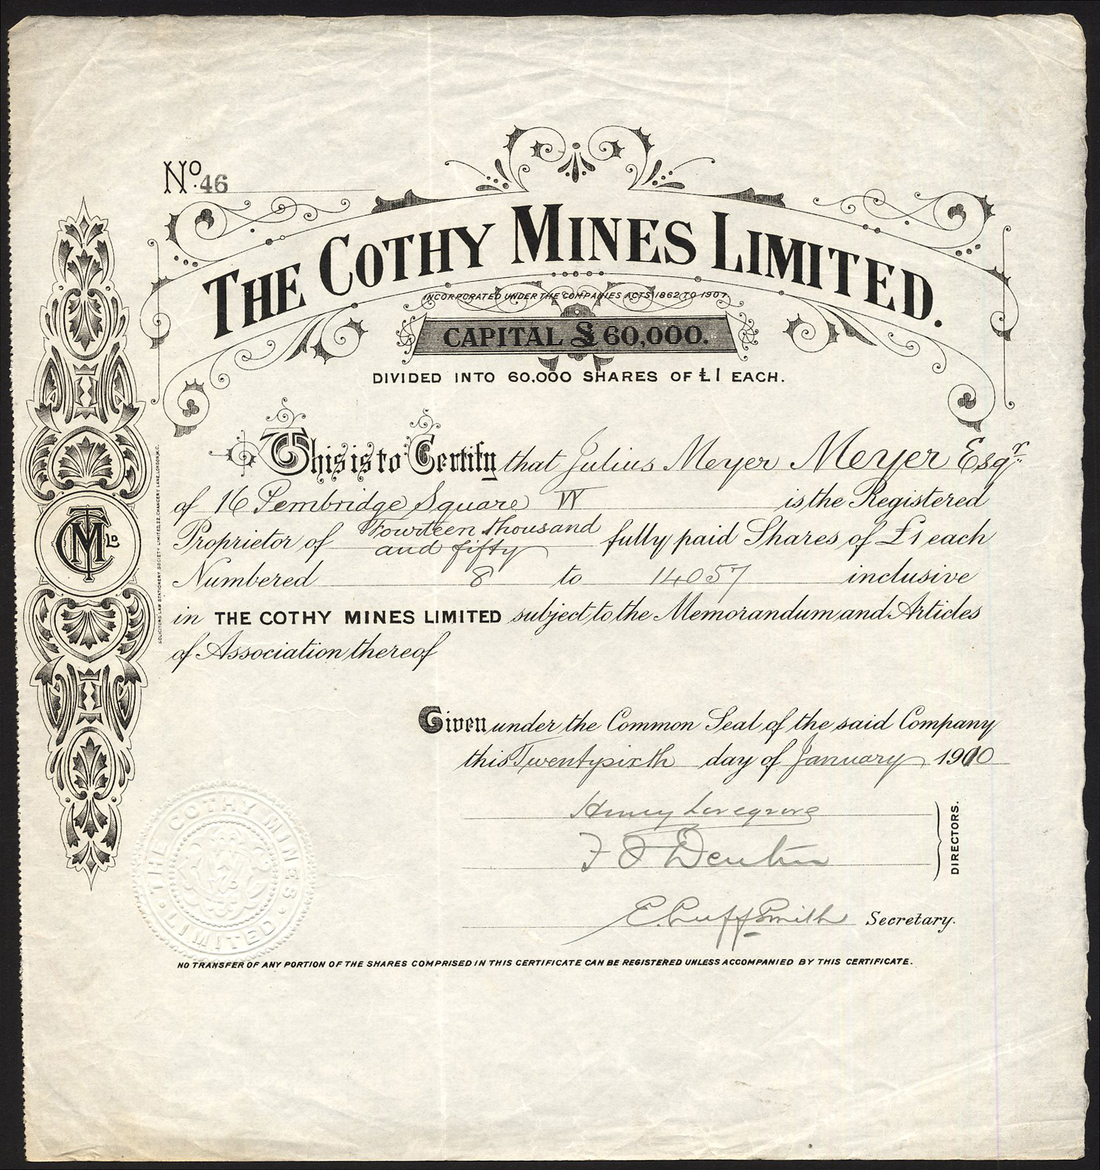 No. 46
THE COTHY MINES LIMITED.
INCORPORATED UNDER THE COMPANIES ACTS 1862 TO 1907.
CAPITAL £60,000.
DIVIDED INTO 60,000 SHARES OF £1 EACH.
This is to Certify that Julius Meyer Meyer Esqr.
of 16 Pembridge Square W is the Registered
Proprietor of Fourteen thousand and fifty fully paid Shares of £1 each
Numbered 8 to 14057 inclusive
in THE COTHY MINES LIMITED subject to the Memorandum and Articles
of Association thereof
Given under the Common Seal of the said Company
this Twentysixth day of January 1910
Henry Lovegrove
F J Denton
DIRECTORS.
E. Cuff Smith Secretary.
NO TRANSFER OF ANY PORTION OF THE SHARES COMPRISED IN THIS CERTIFICATE CAN BE REGISTERED UNLESS ACCOMPANIED BY THIS CERTIFICATE.
CM Ld
SOLICITORS LAW STATIONERY SOCIETY LIMITED, 22, CHANCERY LANE, LONDON, W.C.
THE COTHY MINES LIMITED